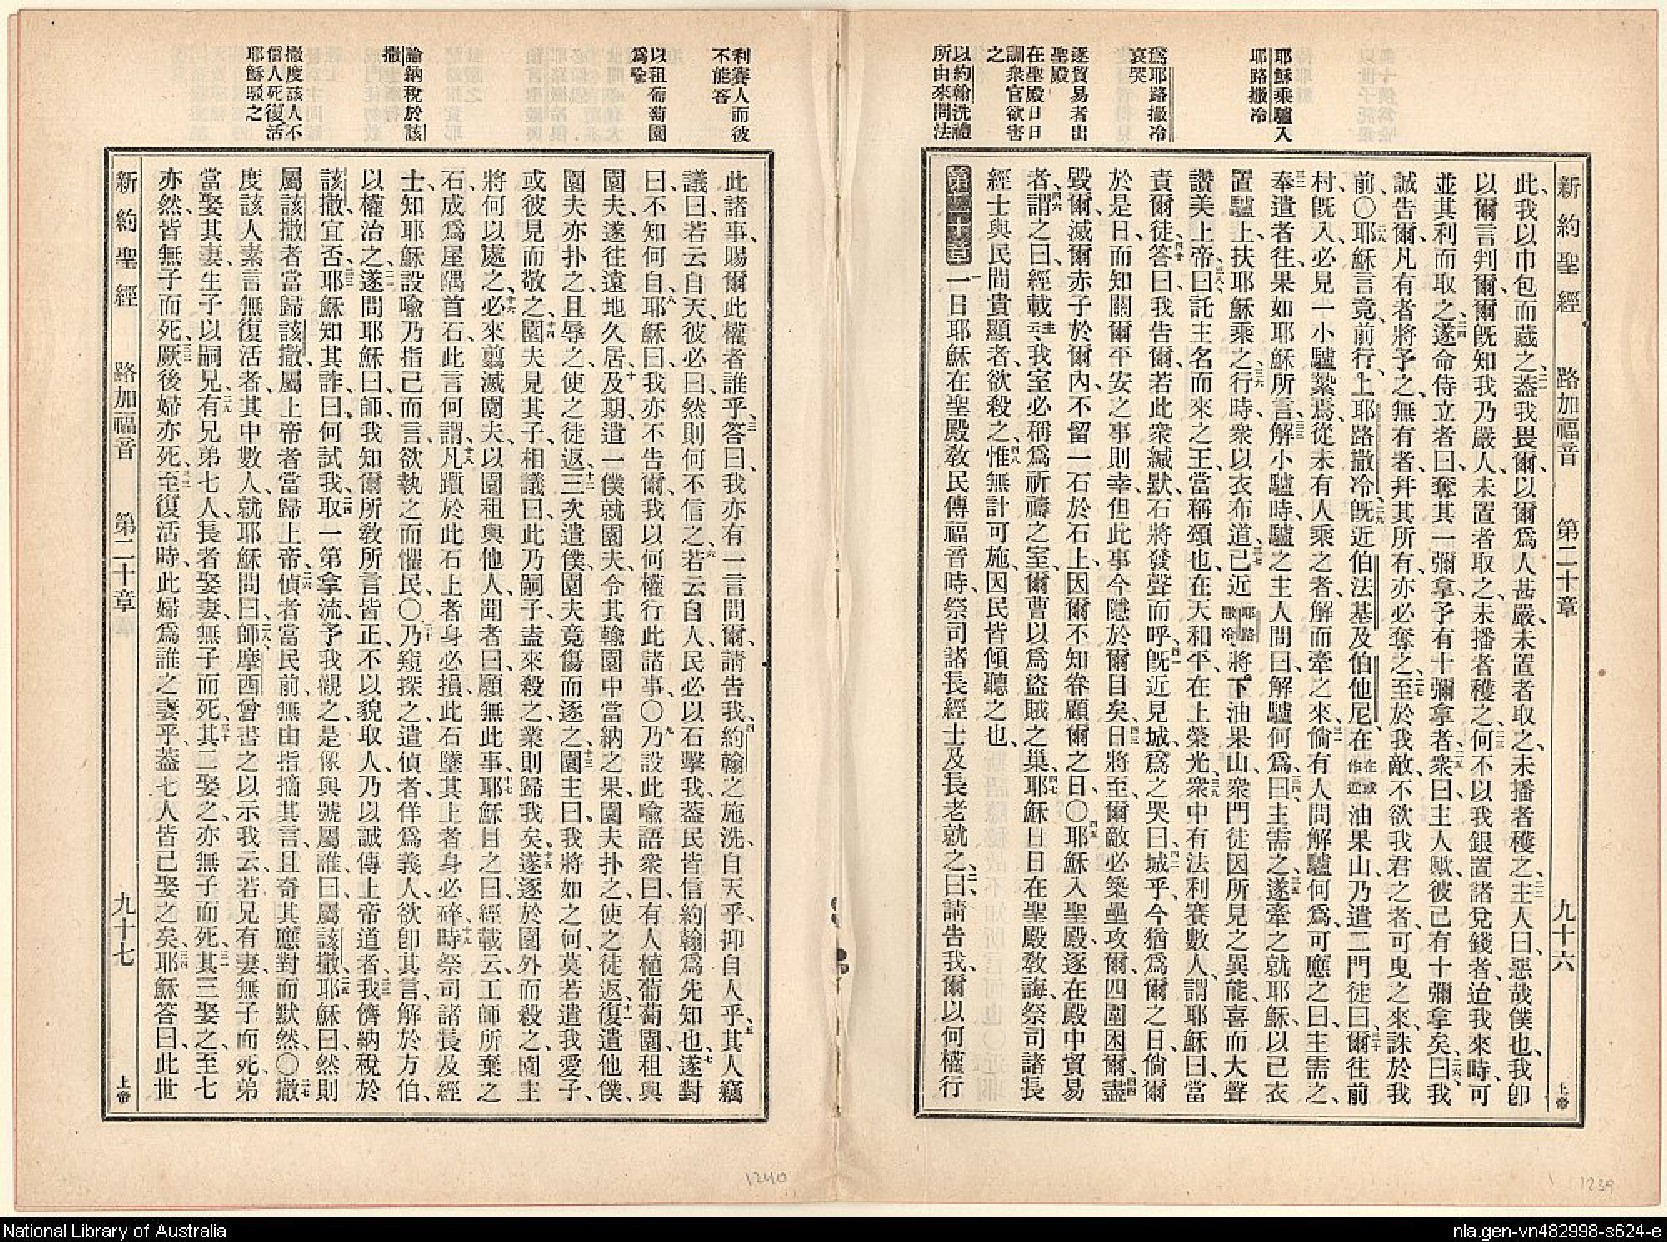 耶穌乘驢入
耶路撒冷
爲耶路撒冷
哀哭
逐貿易者出
聖殿
在聖殿日日
訓衆官欲害
之
以約翰洗禮
所由來問法
新約聖經 路加福音 第二十章 九十六 上帝
此我以巾包而藏之蓋我畏爾以爾爲人甚嚴未置者取之未播者穫之主人曰惡哉僕也我卽
以爾言判爾爾旣知我乃嚴人未置者取之未播者穫之何不以我銀置諸兌錢者迨我來時可
並其利而取之遂命侍立者曰奪其一彌拿予有十彌拿者衆曰主人歟彼已有十彌拿矣曰我
誠告爾凡有者將予之無有者幷其所有亦必奪之至於我敵不欲我君之者可曳之來誅於我
前〇耶穌言竟前行上耶路撒冷旣近伯法基及伯他尼在在或作近油果山乃遣二門徒曰爾往前
村旣入必見一小驢縶焉從未有人乘之者解而牽之來倘有人問解驢何爲可應之曰主需之
奉遣者往果如耶穌所言解小驢時驢之主人問曰解驢何爲曰主需之遂牽之就耶穌以己衣
置驢上扶耶穌乘之行時衆以衣布道已近耶路撒冷將下油果山衆門徒因所見之異能喜而大聲
讚美上帝曰託主名而來之王當稱頌也在天和平在上榮光衆中有法利賽數人謂耶穌曰當
責爾徒答曰我告爾若此衆緘默石將發聲而呼旣近見城爲之哭曰城乎今猶爲爾之日倘爾
於是日而知關爾平安之事則幸但此事今隱於爾目矣日將至爾敵必築壘攻爾四圍困爾盡
毀爾滅爾赤子於爾內不留一石於石上因爾不知眷顧爾之日〇耶穌入聖殿逐在殿中貿易
者謂之曰經載云我室必稱爲祈禱之室爾曹以爲盜賊之巢耶穌日日在聖殿敎誨祭司諸長
經士與民間貴顯者欲殺之惟無計可施因民皆傾聽之也
第二十章一日耶穌在聖殿敎民傳福音時祭司諸長經士及長老就之曰請告我爾以何權行
利賽人而彼
不能答
以租葡萄園
爲喩
論納稅於該
撒
撒度該人不
信人死復活
耶穌駁之
此諸事賜爾此權者誰乎答曰我亦有一言問爾請告我約翰之施洗自天乎抑自人乎其人竊
議曰若云自天彼必曰然則何不信之若云自人民必以石擊我蓋民皆信約翰爲先知也遂對
曰不知何自耶穌曰我亦不告爾我以何權行此諸事〇乃設此喩語衆曰有人植葡萄園租與
園夫遂往遠地久居及期遣一僕就園夫令其輸園中當納之果園夫扑之使之徒返復遣他僕
園夫亦扑之且辱之使之徒返三次遣僕園夫竟傷而逐之園主曰我將如之何莫若遣我愛子
或彼見而敬之園夫見其子相議曰此乃嗣子盍來殺之業則歸我矣遂逐於園外而殺之園主
將何以處之必來翦滅園夫以園租與他人聞者曰願無此事耶穌目之曰經載云工師所棄之
石成爲屋隅首石此言何謂凡躓於此石上者身必損此石墜其上者身必碎時祭司諸長及經
士知耶穌設喩乃指己而言欲執之而懼民〇乃窺探之遣偵者佯爲義人欲卽其言解於方伯
以權治之遂問耶穌曰師我知爾所敎所言皆正不以貌取人乃以誠傳上帝道者我儕納稅於
該撒宜否耶穌知其詐曰何試我取一第拿流予我觀之是像與號屬誰曰屬該撒耶穌曰然則
屬該撒者當歸該撒屬上帝者當歸上帝偵者當民前無由指摘其言且奇其應對而默然〇撒
度該人素言無復活者其中數人就耶穌問曰師摩西曾書之以示我云若兄有妻無子而死弟
當娶其妻生子以嗣兄有兄弟七人長者娶妻無子而死其二娶之亦無子而死其三娶之至七
亦然皆無子而死厥後婦亦死至復活時此婦爲誰之妻乎蓋七人皆已娶之矣耶穌答曰此世
新約聖經 路加福音 第二十章 九十七 上帝
1240
1239
National Library of Australia
nla.gen-vn482998-s624-e